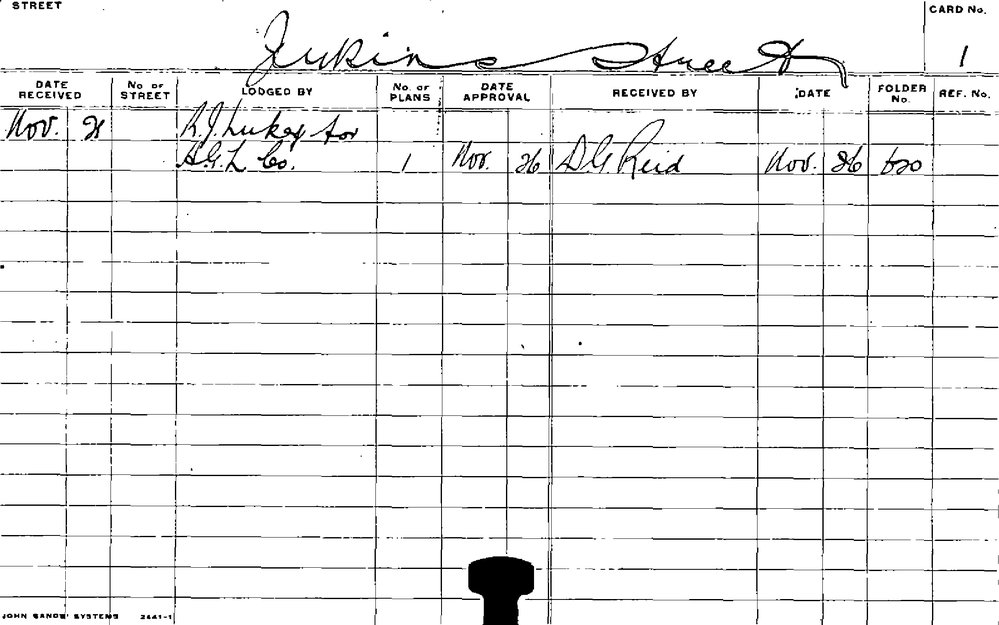 STREET
CARD No.
Jenkins Street
1
DATE RECEIVED
No. OF STREET
LODGED BY
No. OF PLANS
DATE APPROVAL
RECEIVED BY
DATE
FOLDER No.
REF. No.
Nov. R.J. Lukey for
Co. 1 Nov. 26 D.G. Reid Nov. 26 620
JOHN SANDS' SYSTEMS 2441-1